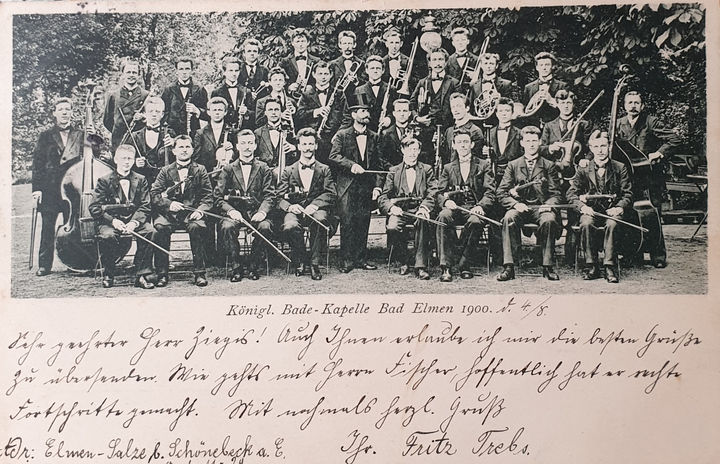 Königl. Bade-Kapelle Bad Elmen 1900. d. 4/8.
Sehr geehrter Herr Ziegis! Auch Ihnen erlaube ich mir die besten Grüße
zu übersenden. Wie gehts mit Herrn Fischer, hoffentlich hat er rechte
Fortschritte gemacht. Mit nochmals herzl. Gruß
Adr: Elmen-Salze b. Schönebeck a. E. Ihr. Fritz Trebs.